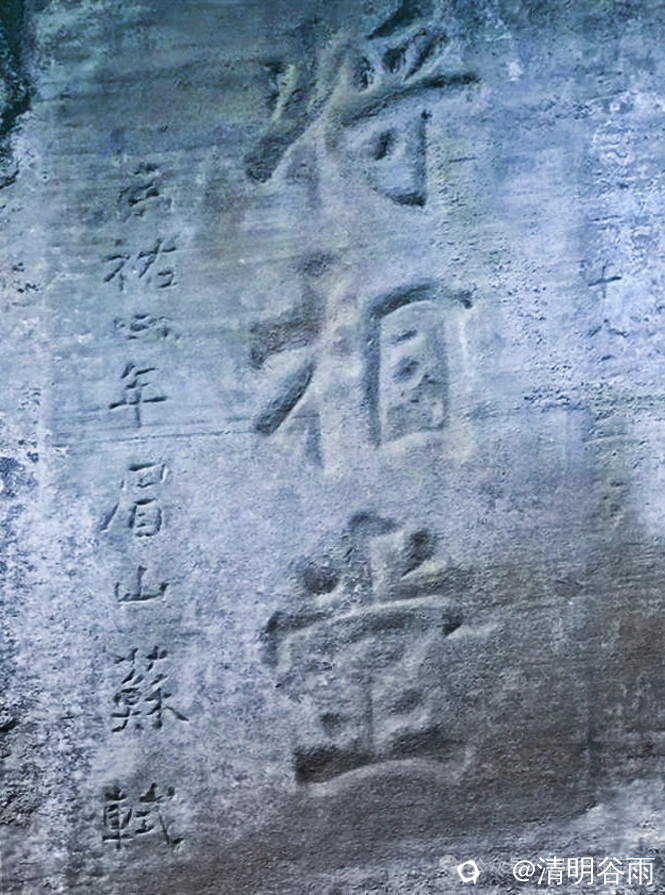 将相堂
元祐四年眉山蘇軾
@清明谷雨